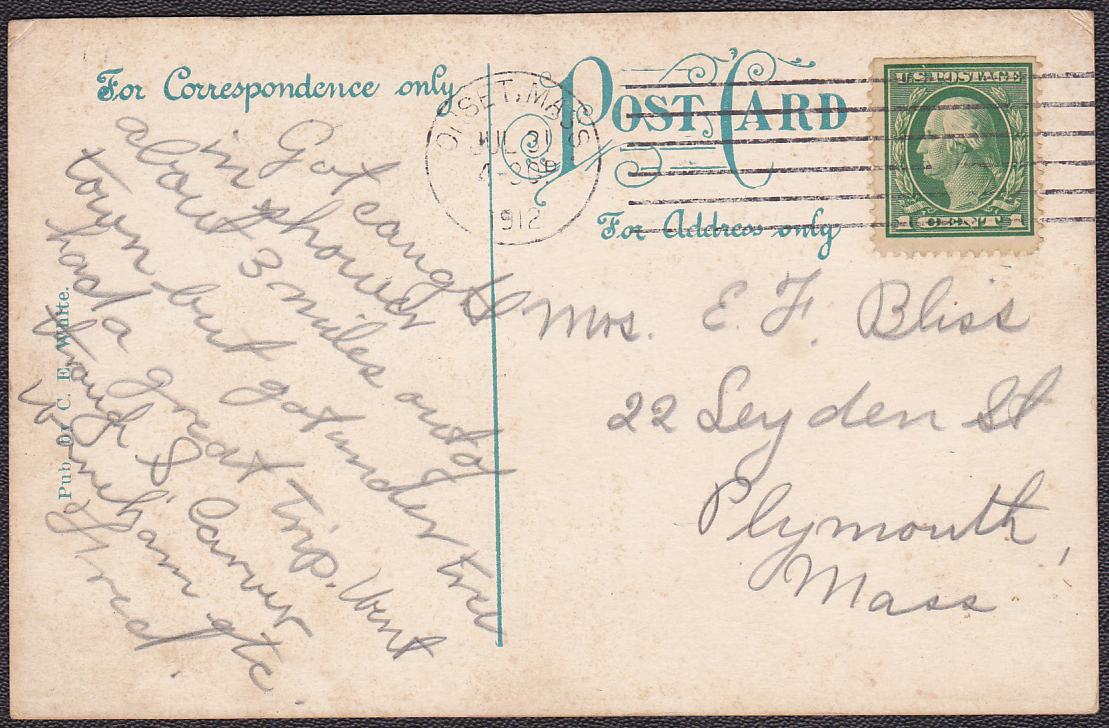 For Correspondence only
POST CARD
ONSET, MASS
JUL 31
4-30P
1912
U.S. POSTAGE
For Address only
Got caught
in shower
about 3 miles out of
town but got under tree
had a great trip. Went
through S. Carver
Wareham etc.
Fred.
Mrs. E. F. Bliss
22 Leyden St
Plymouth,
Mass
Pub. by C. E. White.